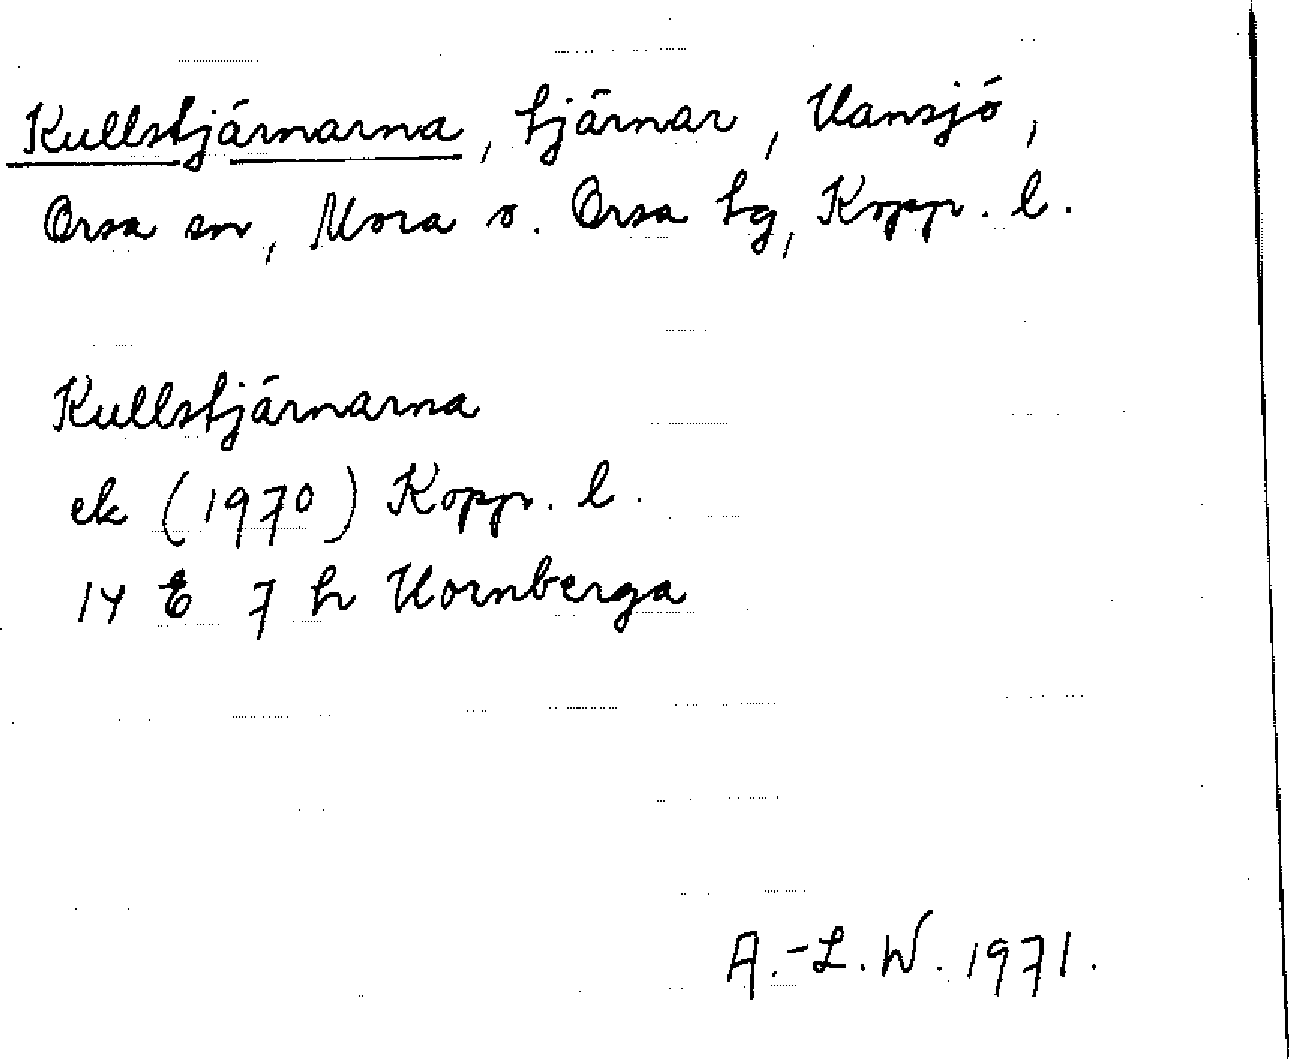 Kullstjärnarna, tjärnar, Hansjö,
Orsa sn, Mora o. Orsa tg, Kopp. l.
Kullstjärnarna
ek (1970) Kopp. l.
14 E 7 h Hornberga
A.-L. W. 1971.